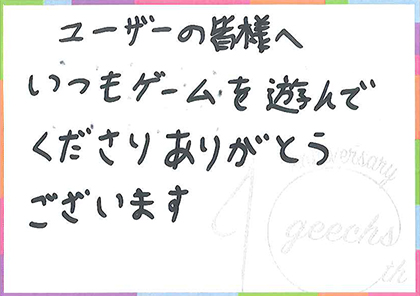 ユーザーの皆様へ
いつもゲームを遊んで
くださりありがとう
ございます
10th
anniversary
geechs